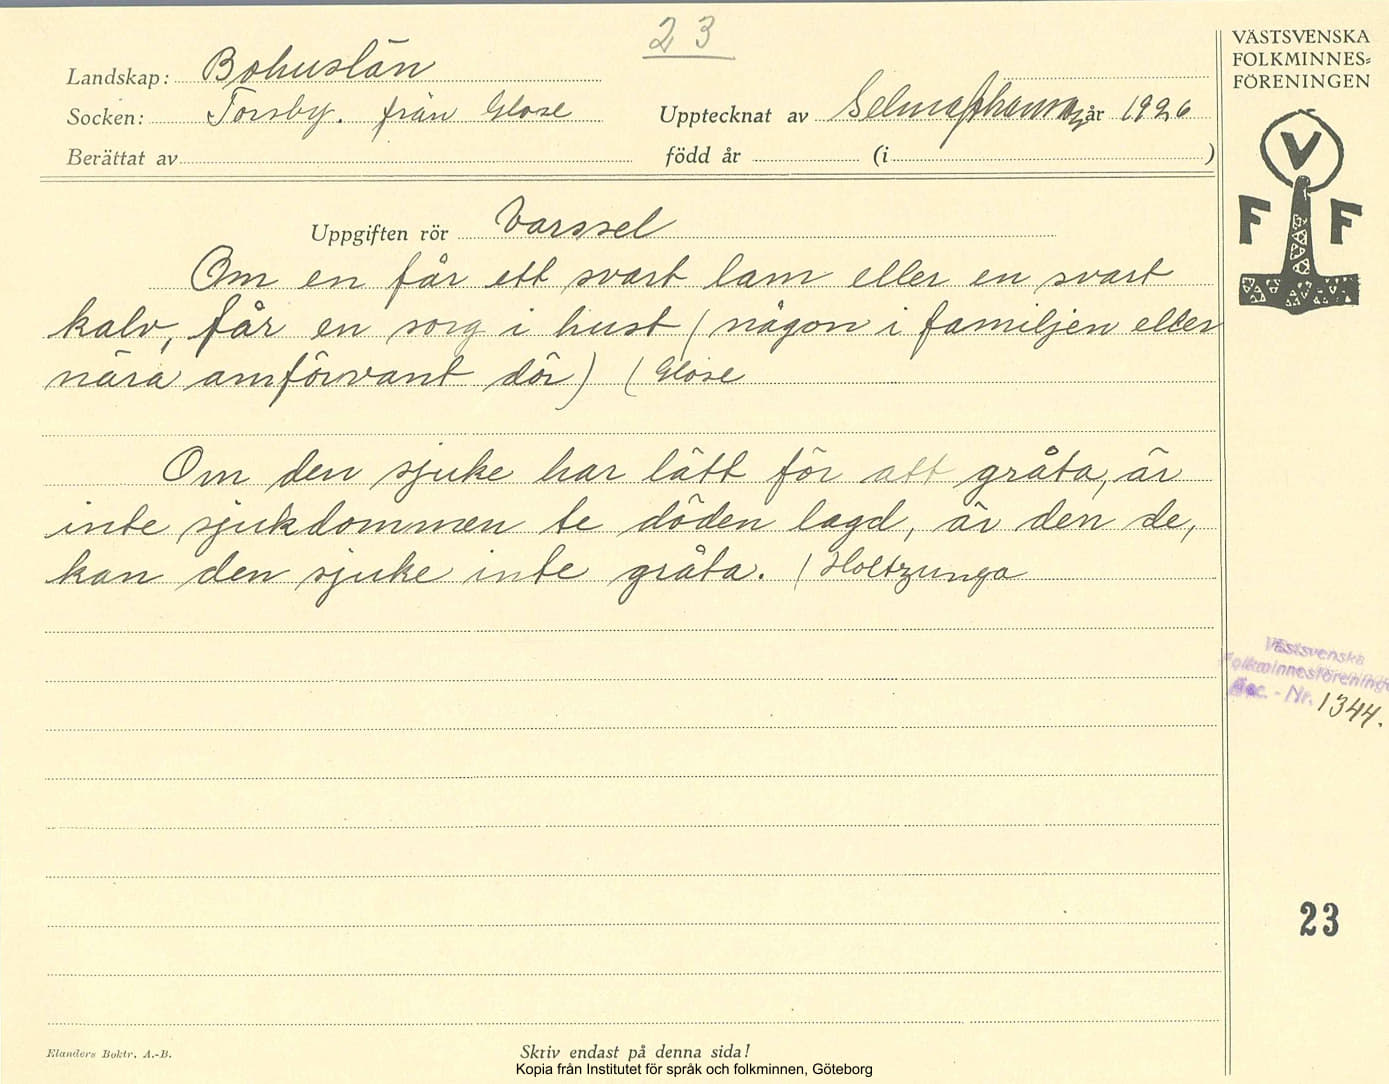 23
VÄSTSVENSKA
FOLKMINNES=
FÖRENINGEN
Landskap: Bohuslän
Socken: Torsby. från Glose
Upptecknat av Selma Johansson år 1926
Berättat av
född år (i )
V
F F
Uppgiften rör Varssel
Om en får ett svart lam eller en svart
kalv, får en sorg i hust (någon i familjen eller
nära amförvant dör) (Glose
Om den sjuke har lätt för att gråta, är
inte sjukdommen te döden lagd, är den de,
kan den sjuke inte gråta. (Holtzunga
Västsvenska
Folkminnesföreningen
Acc. - Nr. 1344.
23
Elanders Boktr. A.-B.
Skriv endast på denna sida!
Kopia från Institutet för språk och folkminnen, Göteborg